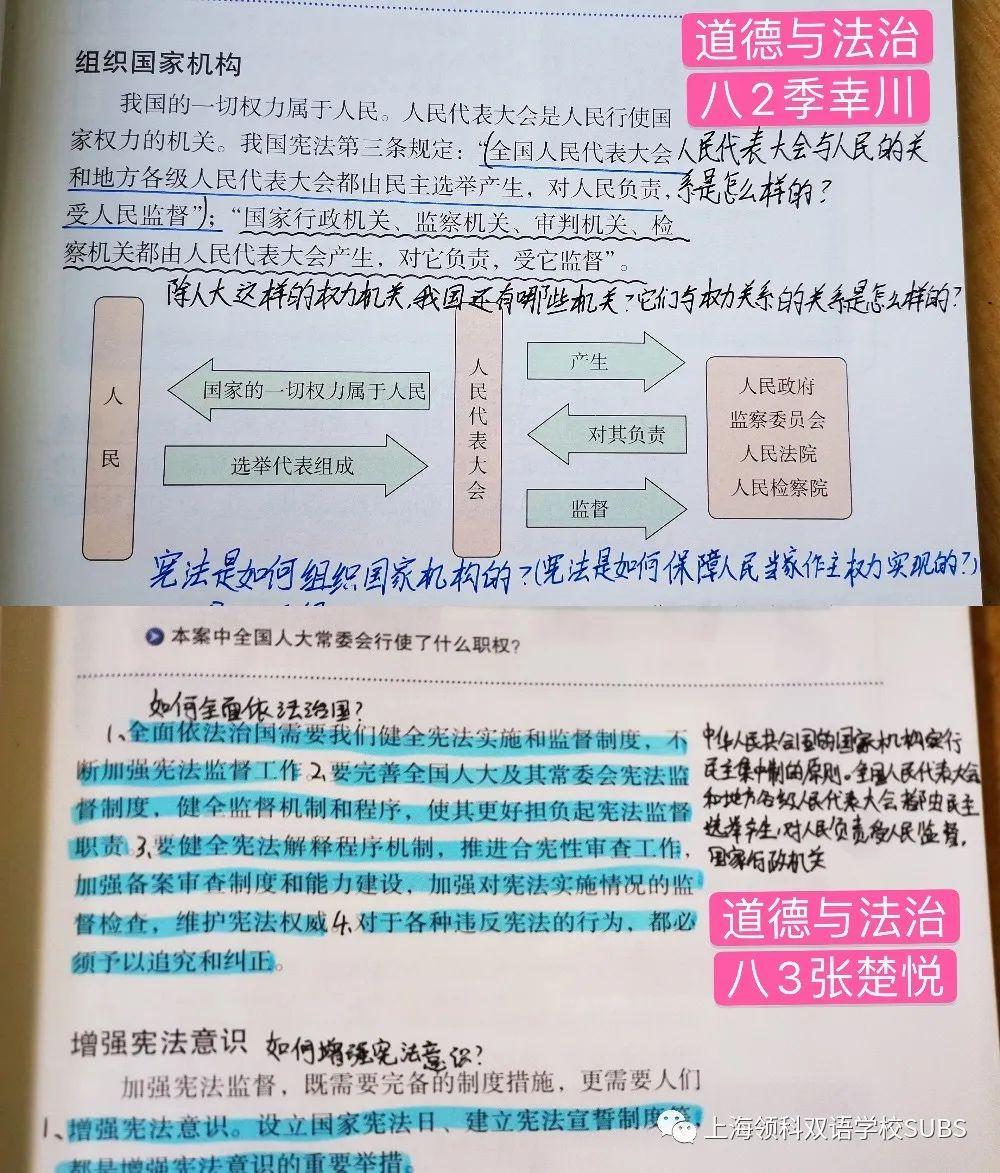 组织国家机构
道德与法治
八2季幸川
我国的一切权力属于人民。人民代表大会是人民行使国
家权力的机关。我国宪法第三条规定：“(全国人民代表大会
和地方各级人民代表大会都由民主选举产生，对人民负责，
受人民监督”)；“国家行政机关、监察机关、审判机关、检
察机关都由人民代表大会产生，对它负责，受它监督”。
人民代表大会与人民的关
系是怎么样的？
除人大这样的权力机关，我国还有哪些机关？它们与权力关系的关系是怎么样的？
人民
国家的一切权力属于人民
选举代表组成
人民代表大会
产生
对其负责
监督
人民政府
监察委员会
人民法院
人民检察院
宪法是如何组织国家机构的？(宪法是如何保障人民当家作主权力实现的？)
本案中全国人大常委会行使了什么职权？
如何全面依法治国？
1、全面依法治国需要我们健全宪法实施和监督制度，不
断加强宪法监督工作2、要完善全国人大及其常委会宪法监
督制度，健全监督机制和程序，使其更好担负起宪法监督
职责3、要健全宪法解释程序机制，推进合宪性审查工作，
加强备案审查制度和能力建设，加强对宪法实施情况的监
督检查，维护宪法权威4、对于各种违反宪法的行为，都必
须予以追究和纠正。
中华人民共合国的国家机构实行
民主集中制的原则。全国人民代表大会
和地方各级人民代表大会都由民主
选举产生，对人民负责，受人民监督，
国家行政机关
道德与法治
八3张楚悦
增强宪法意识 如何增强宪法意识？
加强宪法监督，既需要完备的制度措施，更需要人们
1、增强宪法意识。设立国家宪法日、建立宪法宣誓制度等，
都是增强宪法意识的重要举措。
上海领科双语学校SUBS